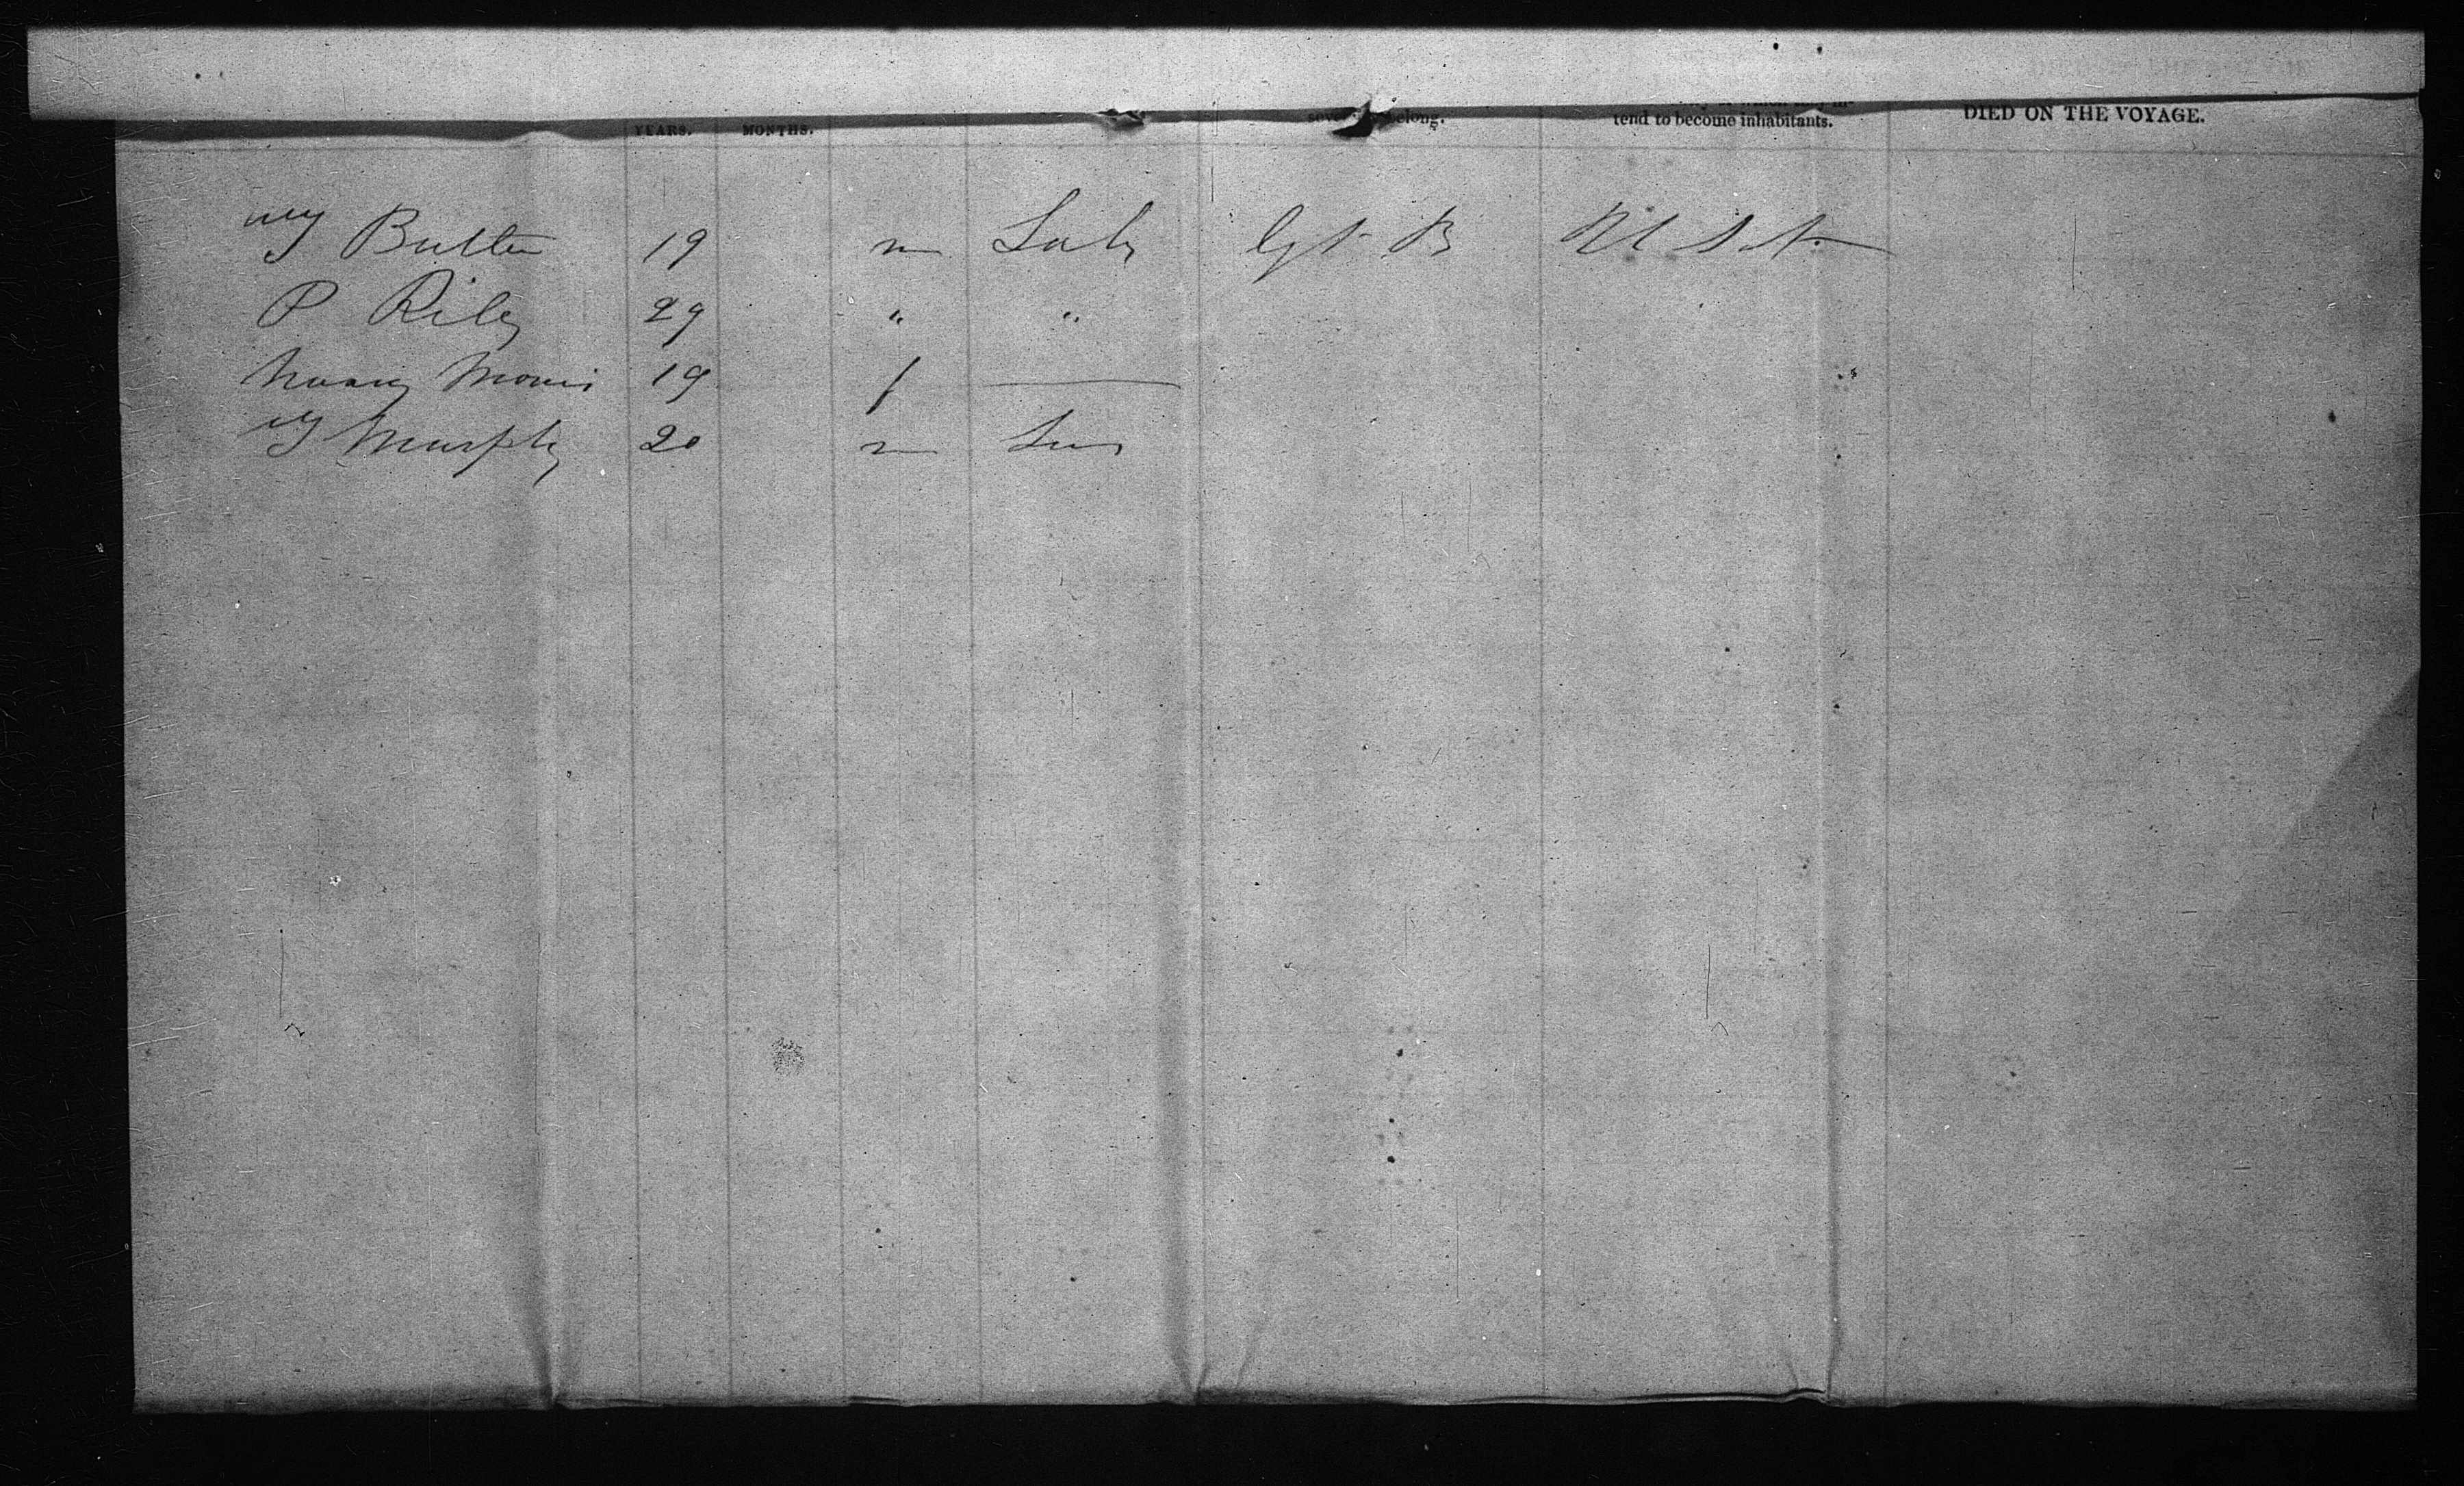 YEARS. MONTHS. belong. tend to become inhabitants. DIED ON THE VOYAGE.
Wm Butler 19 m Lab Gt B U States
P Riley 29 " "
Nancy Morris 19 f
Wm Murphy 20 m